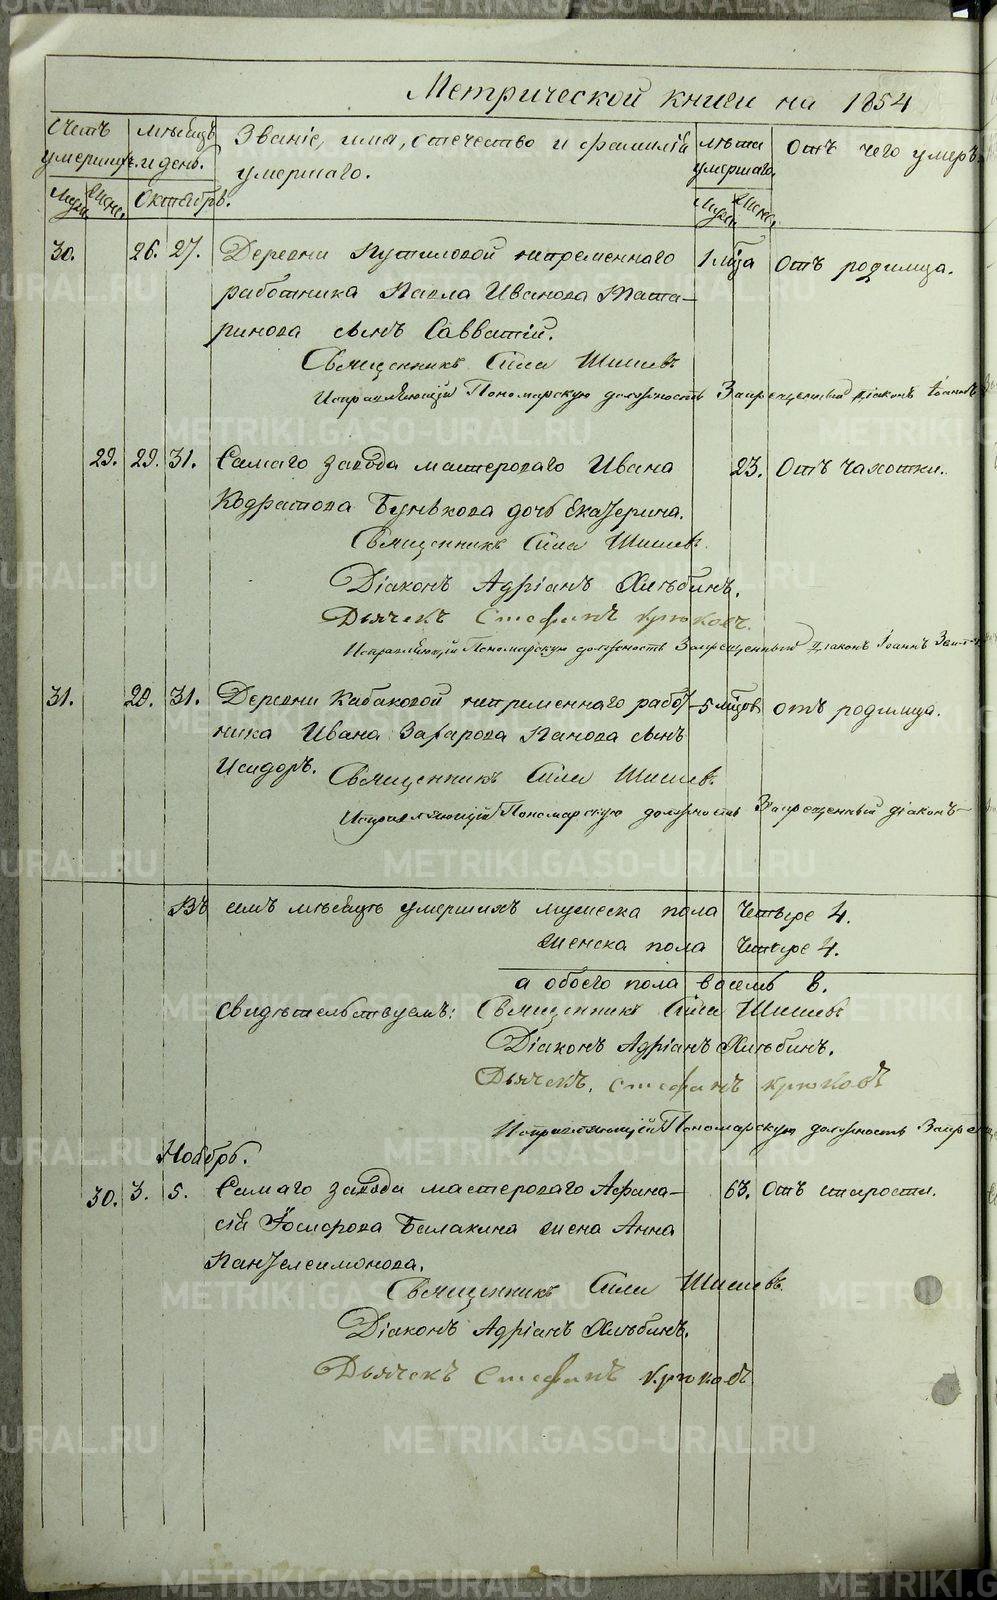 Метрической книги на 1854
Счетъ умершихъ.
Мѣсяцъ и день.
Званіе, имя, отечество и фамилія
умершаго.
Лѣта умершаго.
Отъ чего умеръ.
Муж. Женс.
Октябрь.
Муж. Женс.
30. 26. 27. Деревни Путиловой непременнаго 1 мѣсца Отъ родимца.
работника Павла Иванова Ката-
ринова сынъ Савватій.
Священникъ Сила Шишевъ
Исправляющій Пономарскую должность Запрещенный діаконъ Іоаннъ
29. 29. 31. Самаго завода мастероваго Ивана 23. Отъ чахотки.
Кодратова Бунькова дочь Екатерина.
Священникъ Сила Шишевъ.
Діаконъ Адріанъ Хлѣбинъ.
Дьячекъ Стефанъ Крюковъ.
Исправляющій Пономарскую должность Запрещенный Діаконъ Іоаннъ
31. 28. 31. Деревни Кабаковой непременнаго работ- 5 мѣсцов отъ родимца.
ника Ивана Захарова Панова сынъ
Исидоръ. Священникъ Сила Шишевъ.
Исправляющій Пономарскую должность Запрещенный діаконъ
Въ семъ мѣсяцѣ умершихъ мужеска пола Четыре 4.
женска пола Четыре 4.
а обоего пола восемь 8.
Свидѣтельствуемъ: Священникъ Сила Шишевъ
Діаконъ Адріанъ Хлѣбинъ.
Дьячекъ. Стефанъ Крюковъ
Исправляющій Пономарскую должность Запрещ
Ноябрь.
30. 3. 5. Самаго завода мастероваго Афана- 63. Отъ старости.
сія Ѳомина Балакина жена Анна
Пантелеимонова.
Священникъ Сила Шишевъ.
Діаконъ Адріанъ Хлѣбинъ.
Дьячекъ Стефанъ Крюковъ
METRIKI.GASO-URAL.RU